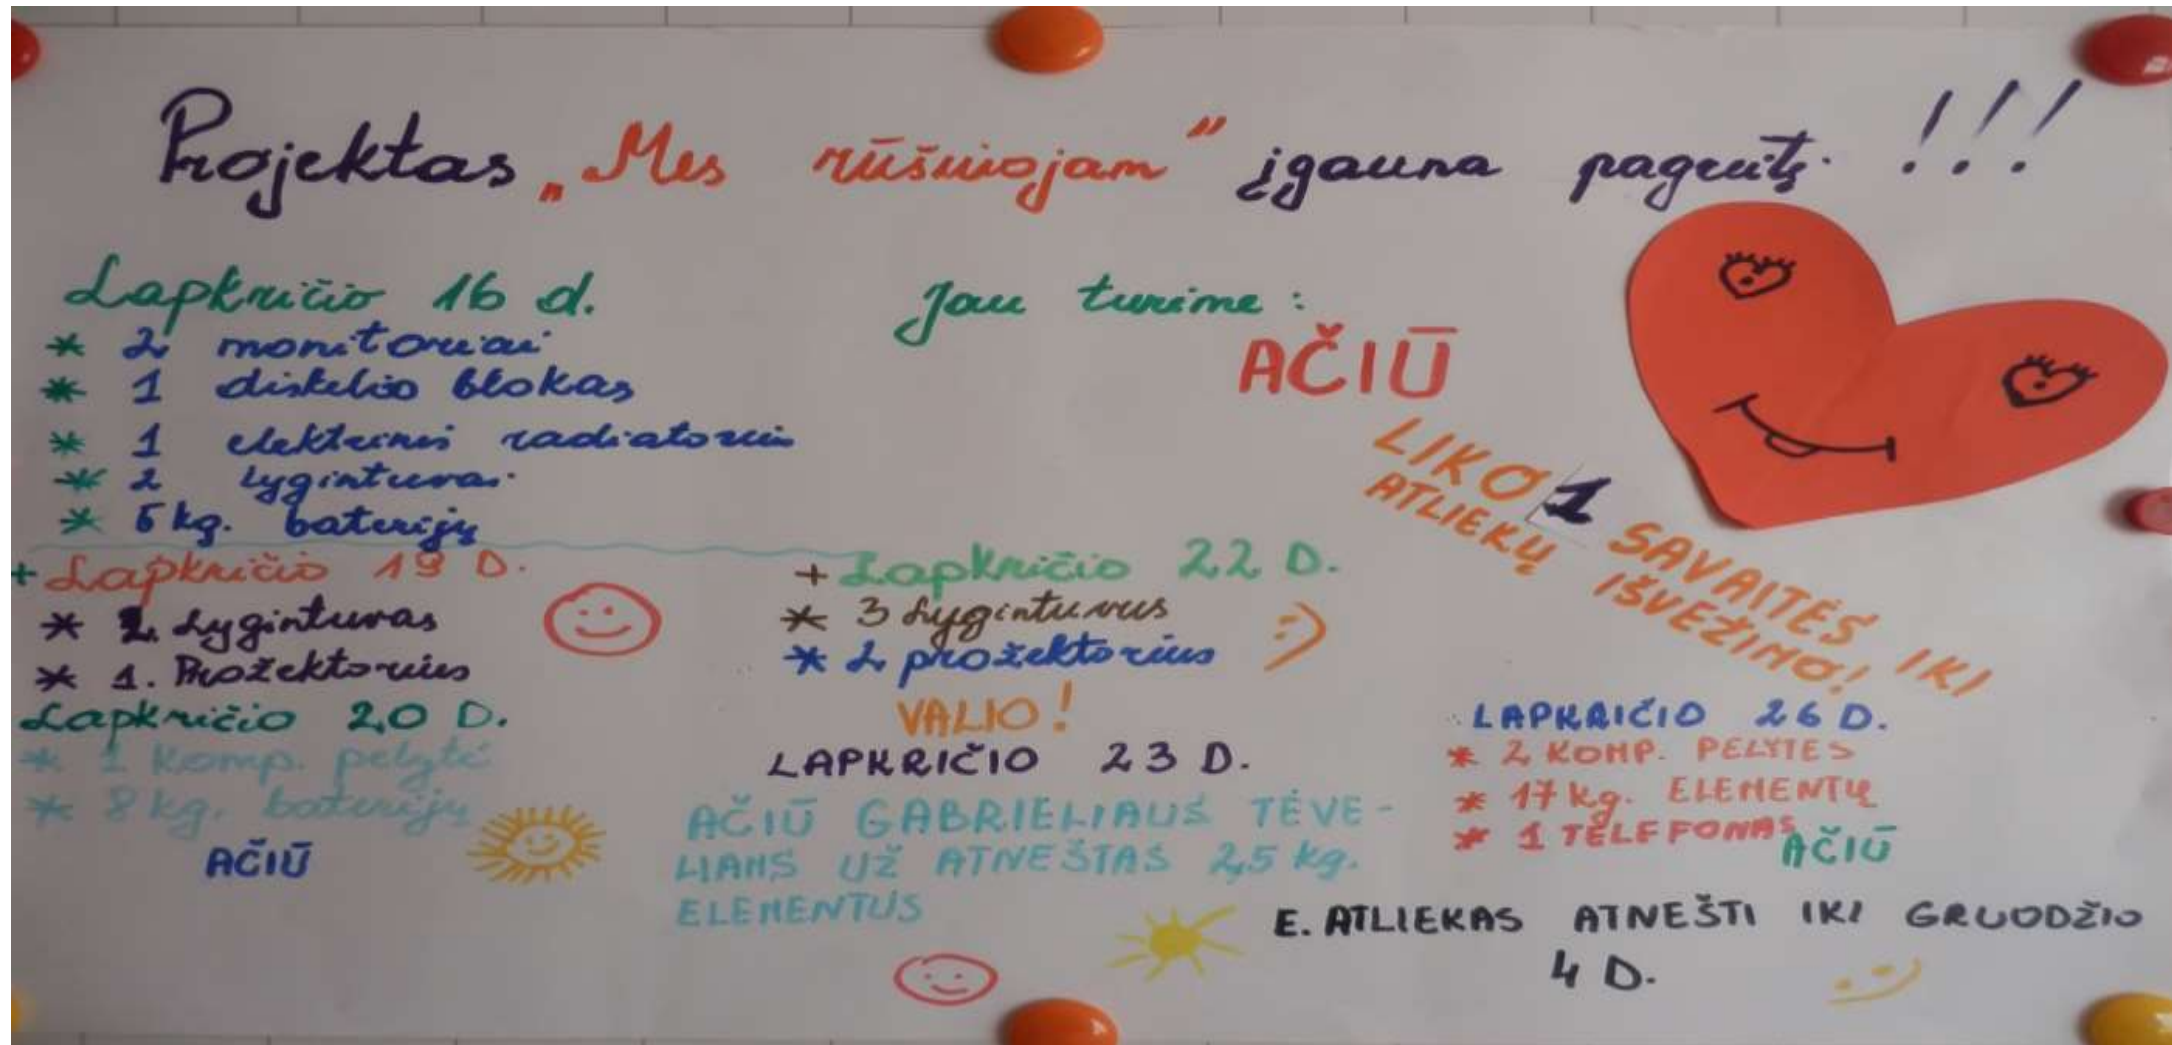 Projektas „Mes rūšiuojam“ įgauna pagreitį !!!
Lapkričio 16 d.
* 2 monitoriai
* 1 diskelio blokas
* 1 elektrinis radiatorius
* 2 lygintuvai
* 5 kg. baterijų
Jau turime:
AČIŪ
LIKO 1 SAVAITĖS IKI
ATLIEKŲ IŠVEŽIMO!
+ Lapkričio 19 D.
* 2. Lygintuvas
* 1. Prožektorius
Lapkričio 20 D.
* 1 komp. pelytė
* 8 kg. baterijų
AČIŪ
+ Lapkričio 22 D.
* 3 Lygintuvus
* 2 prožektorius
:)
VALIO!
LAPKRIČIO 23 D.
AČIŪ GABRIELIAUS TĖVE-
LIAMS UŽ ATNEŠTAS 2,5 kg.
ELEMENTUS
LAPKRIČIO 26 D.
* 2 KOMP. PELYTES
* 17 kg. ELEMENTŲ
* 1 TELEFONAS
AČIŪ
E. ATLIEKAS ATNEŠTI IKI GRUODŽIO
4 D.